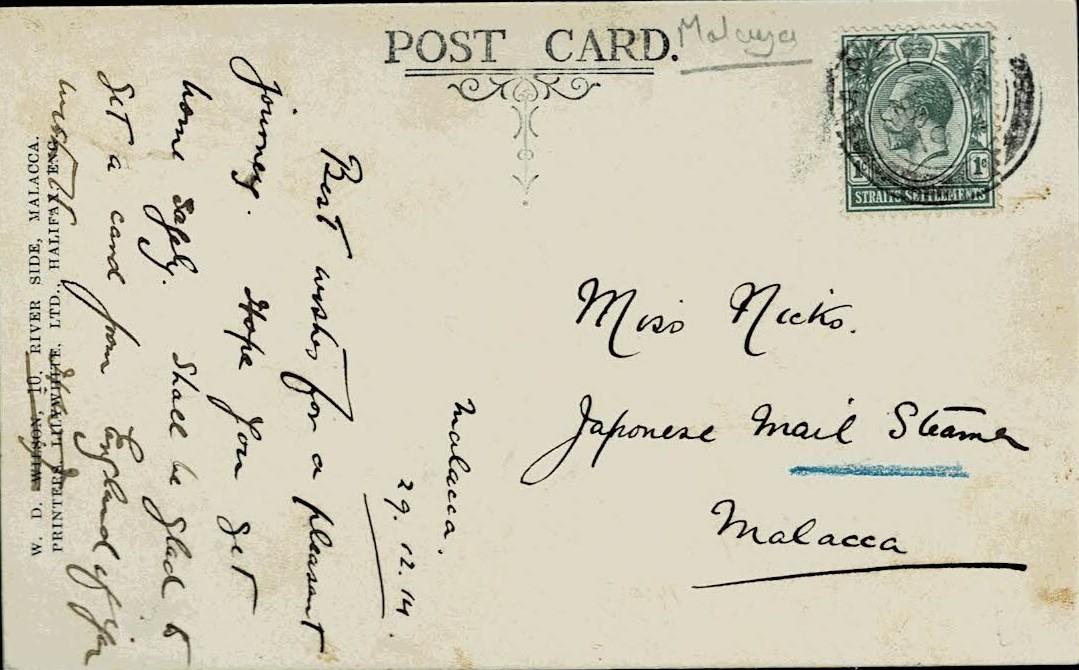 POST CARD.
Malaya
1c 1c
STRAITS SETTLEMENTS
Malacca.
29.12.14.
Best wishes for a pleasant
Journey. Hope you get
home safely. Shall be glad to
get a card from England if you
W. D. 10, RIVER SIDE, MALACCA.
PRINTER, LTD., HALIFAX, ENG.
Miss Nicks.
Japanese Mail Steamer
Malacca